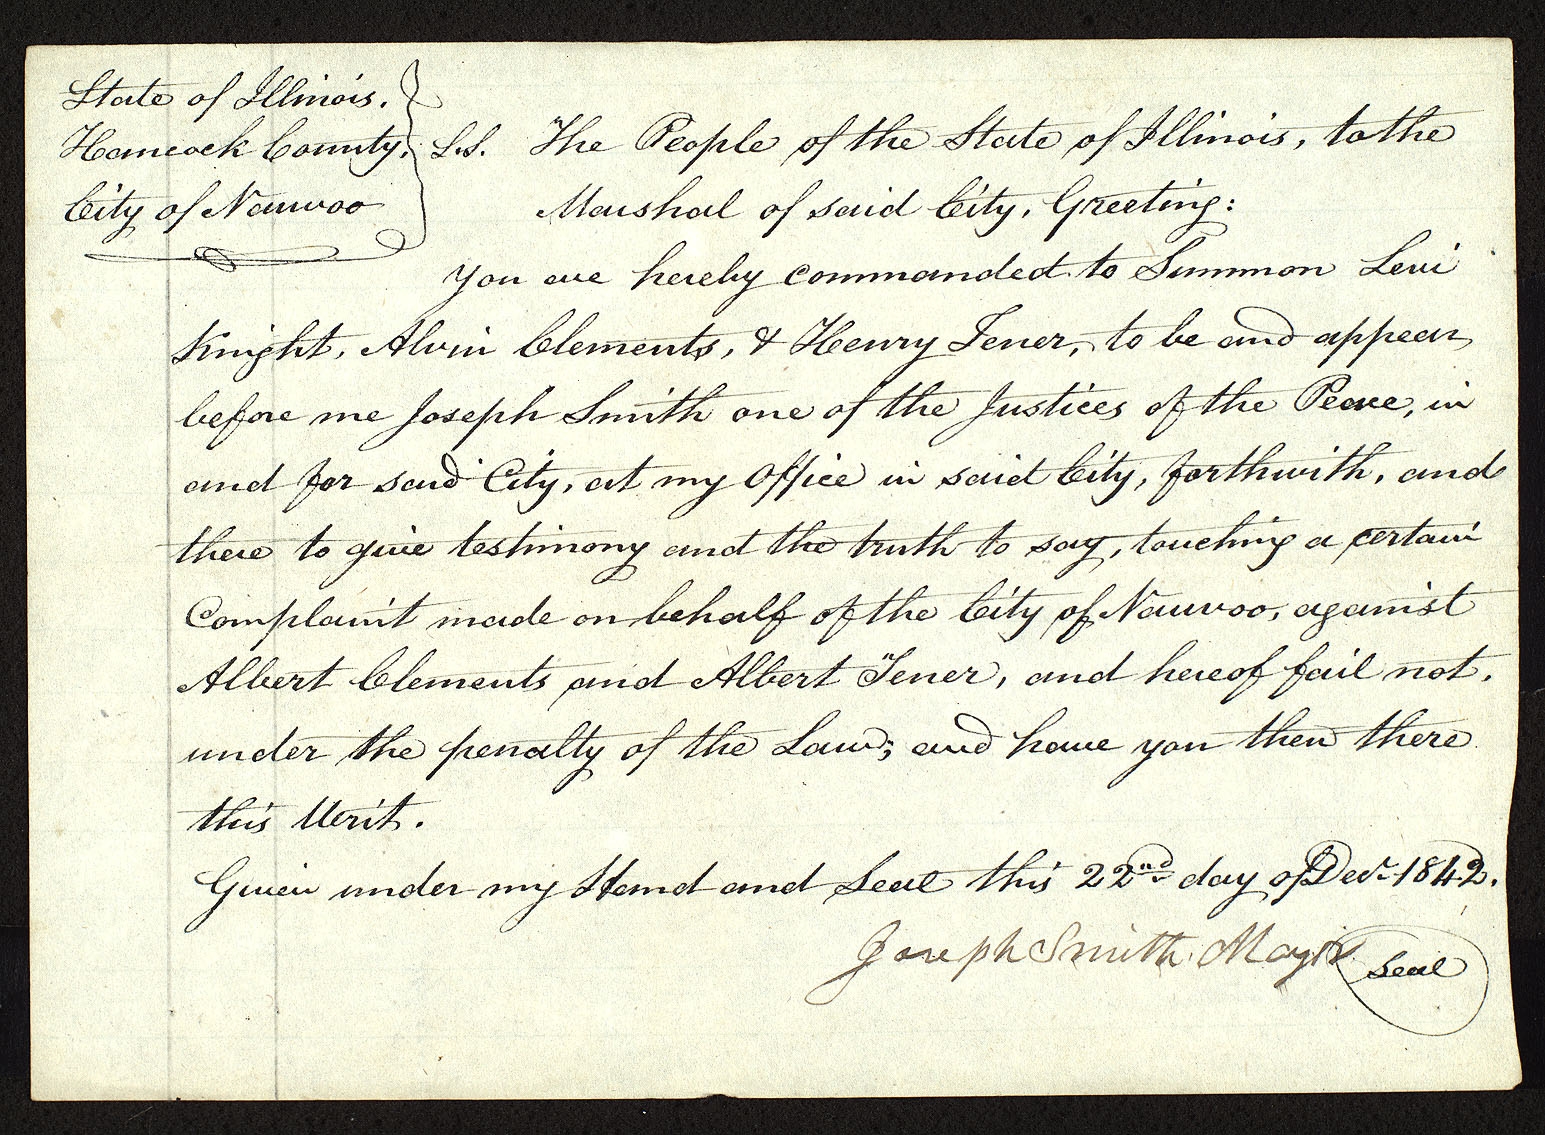 State of Illinois.
Hancock County.
City of Nauvoo
S.S. The People of the State of Illinois, to the
Marshal of said City, Greeting:
You are hereby commanded to Summon Levi
Knight, Alvin Clements, & Henry Tener, to be and appear
before me Joseph Smith one of the Justices of the Peace, in
and for said City, at my Office in said City, forthwith, and
there to give testimony and the truth to say, touching a certain
Complaint made on behalf of the City of Nauvoo, against
Albert Clements and Albert Tener, and hereof fail not,
under the penalty of the Law; and have you then there
this Writ.
Given under my Hand and Seal this 22nd day of Decr. 1842.
Joseph Smith Mayor Seal